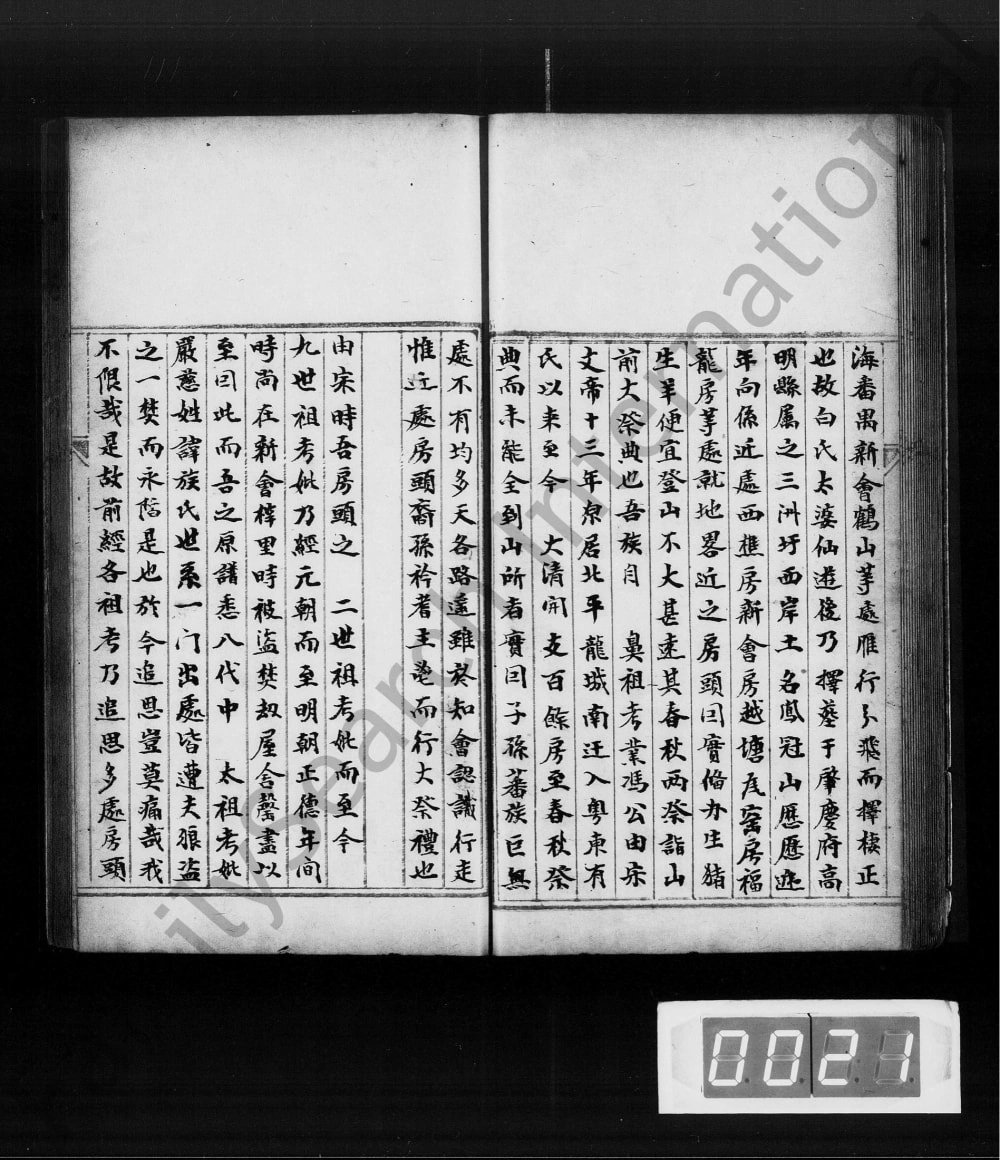 海番禺新會鶴山等處雁行分飛而擇棲正
也故白氏太婆仙遊後乃擇塟于肇慶府高
明縣属之三洲圩西岸土名鳳冠山歷歷遞
年向係近處西樵房新會房越塘瓦窑房福
龍房等處就地畧近之房頭回實俻办生猪
生羊便宜登山不大甚遠其春秋两祭詣山
前大祭典也吾族自　鼻祖考業馮公由宗
文帝十三年原居北平龍城南迁入粤東有
民以來至今　大清開支百餘房至春秋祭
典而未能全到山所者實曰子孫蕃族巨無
處不有均多天各路遠雖於知會認識行走
惟近處房頭裔孫衿耆主鬯而行大祭禮也
由宋時吾房頭之　二世祖考妣而至今
九世祖考妣乃經元朝而至明朝正德年间
時尚在新會梓里時被盜焚刼屋舍罄盡以
至曰此而吾之原譜悉八代中　太祖考妣
嚴慈姓諱族氏世系一门出處皆遭夫狼盜
之一焚而永陷是也於今追思豈莫痛哉我
不恨哉是故前經各祖考乃追思多處房頭
0021
FamilySearch International